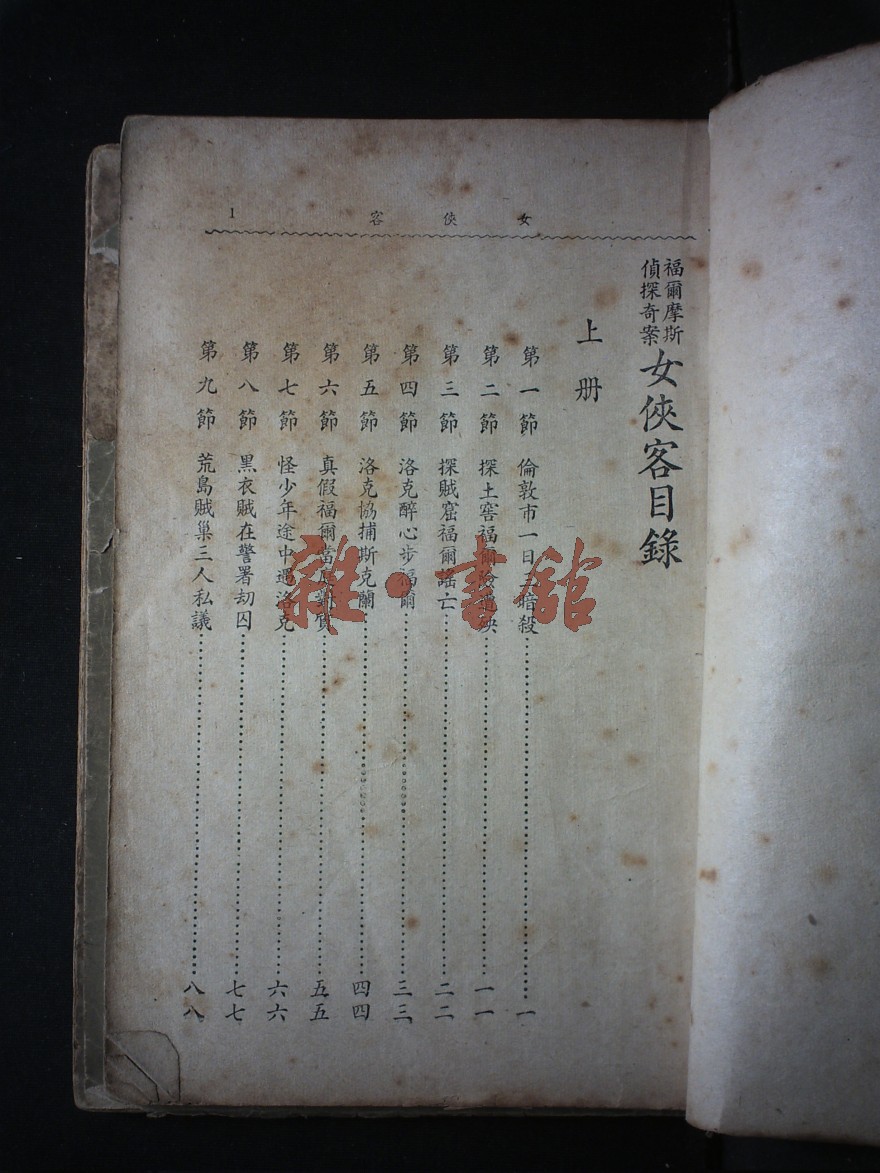 女俠客 1
福爾摩斯
偵探奇案
女俠客目錄
上册
第一節 倫敦市一日 暗殺 一
第二節 探土窖福爾 殃 一一
第三節 探賊窟福爾謠亡 二二
第四節 洛克醉心步福爾 三三
第五節 洛克協捕斯克蘭 四四
第六節 真假福爾當 質 五五
第七節 怪少年途中遇洛克 六六
第八節 黑衣賊在警署劫囚 七七
第九節 荒島賊巢三人私議 八八
雜·書館